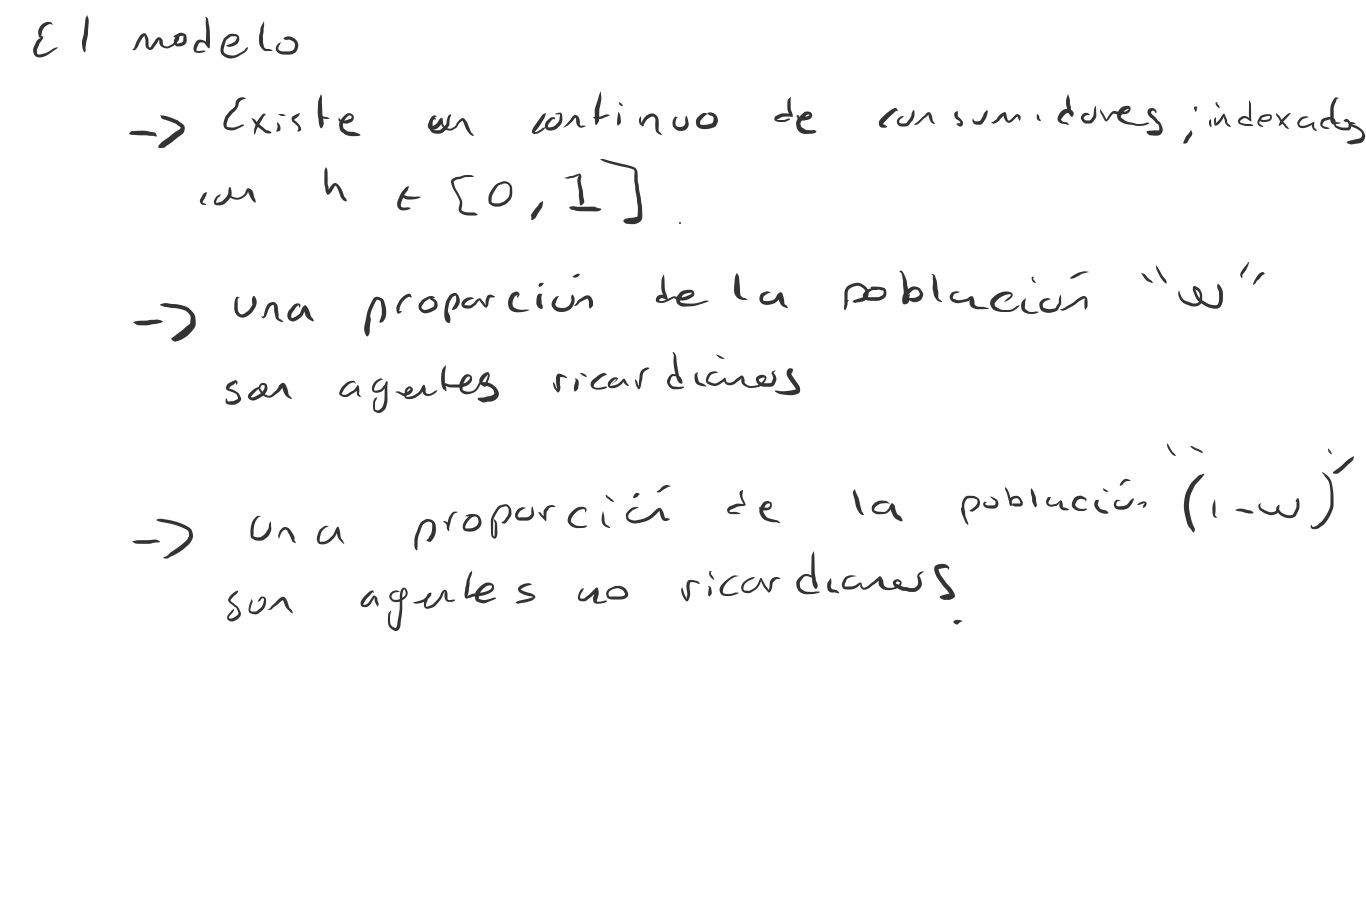 El modelo
-> Existe un continuo de consumidores, indexados
con h ∈ [0, 1].
-> una proporción de la población "w"
son agentes ricardianos
-> una proporción de la población "(1-w)"
son agentes no ricardianos.